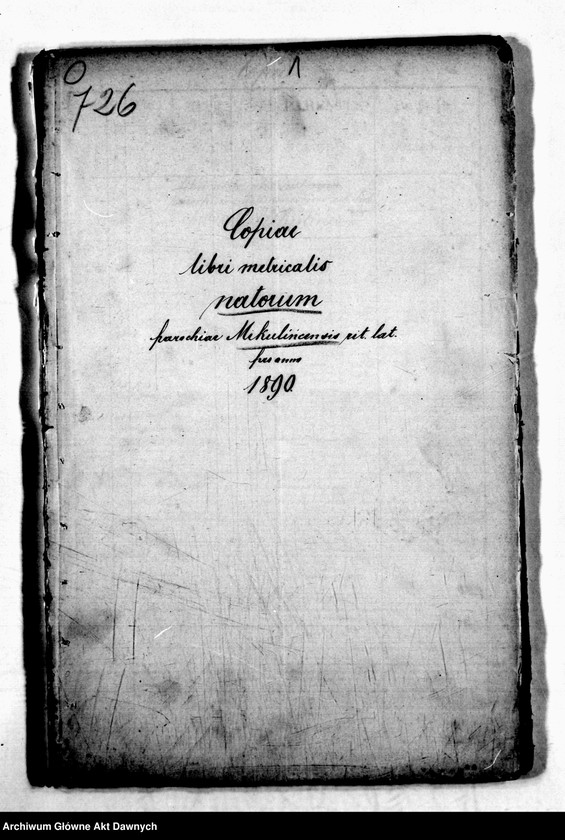 1
726
Copiae
libri metricalis
natorum
parochiae Mikulincensis rit. lat.
pro anno
1890.
Archiwum Główne Akt Dawnych